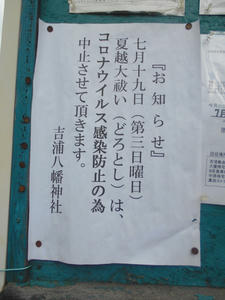 『お知らせ』
七月十九日（第三日曜日）
夏越大祓い（どろとし）は、
コロナウイルス感染防止の為
中止させて頂きます。
吉浦八幡神社